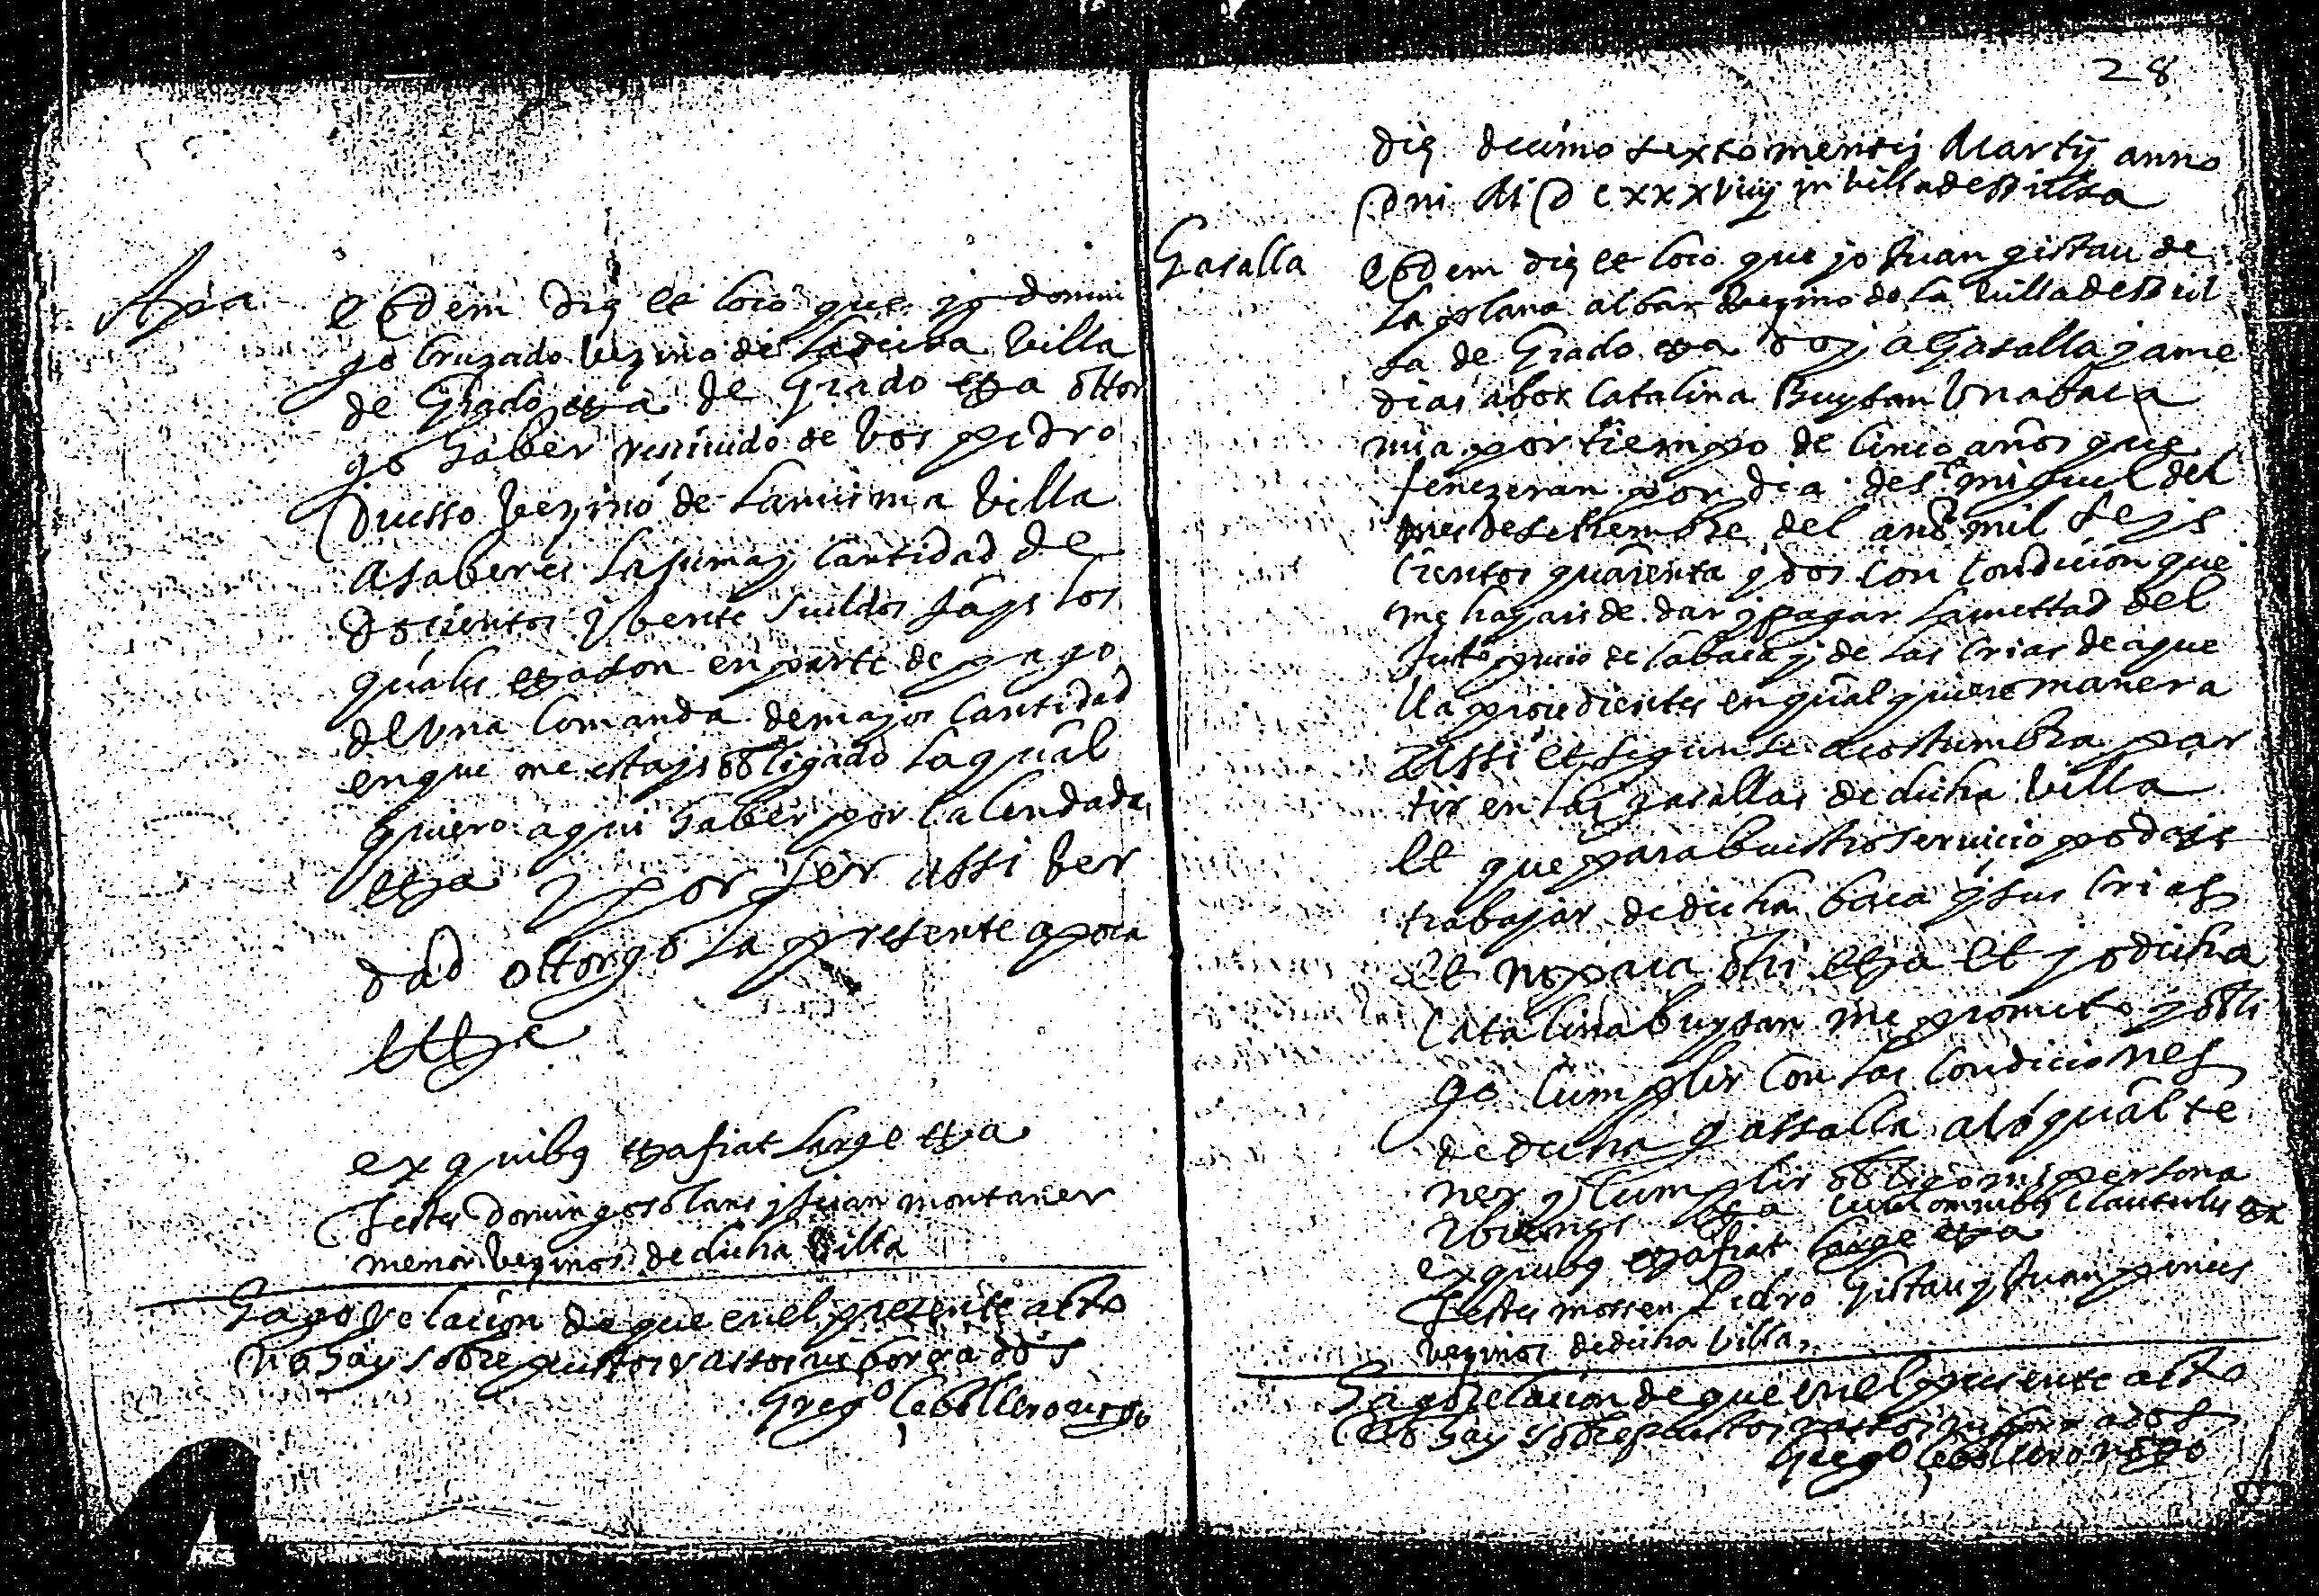 Apa
eodem die et loco que yo domin
go Cruzado vezino de la dicha villa
de Grado etza de Grado etza ottor
go haber reciuido de vos pedro
Duesso vezino de la misma villa
a saber es la suma y cantidad de
docientos y vente sueldos jaqs los
quales etza son en parte de pago
de una Comanda de mayor cantidad
en que me estays obligado la qual
quiero aqui haber por calendada
etza y por ser assi ver
dad ottorgo la presente apoca
etza
ex quibg etza fiat large etza
Testes Domingo solans y Juan montaner
menor vezinos de dicha villa
Hago relacion de que en el presente acto
no hay sobrepuestos rassos ni borrados
Grego Cebollero noto
28
die decimo sexto mensis Martij anno
Dni M D C xxxviiij in villa de
Gasalla
eodem die et loco que yo Juan gistau de
la plana albar vezino de la villa de
la de Grado etza doy a Gasalla y a me
dias a bos Catalina Buysan una baca
mia por tiempo de cinco años que
fenezeran por dia de st miguel del
mes de setiembre del año mil seys
cientos quarenta y dos con condicion que
me hayais de dar y pagar la mettad del
justo precio de la baca y de las crias de aque
lla procedientes en qualquiere manera
assi et segun se acostumbra par
tir en las gasallas de dicha villa
et que para buestro serviçio podays
trabajar de dicha baca y sus crias
et no para otri etza et yo dicha
Catalina buysan me prometo y obli
go cumplir con las condiciones
de dicha gassalla a lo qual te
ner y cumplir obligo mi persona
y bienes etza cum omnibg clausulis
ex quibg etza fiat large etza
Testes mossen Pedro Gistau y Juan
vezinos de dicha villa
Hago relacion de que en el presente acto
no hay sobrepuestos rassos ni borrados
Grego Cebollero noto